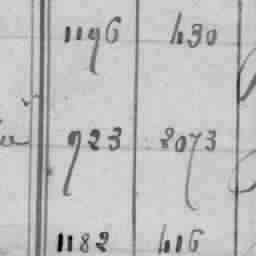 1196 430
923 8073
1182 416